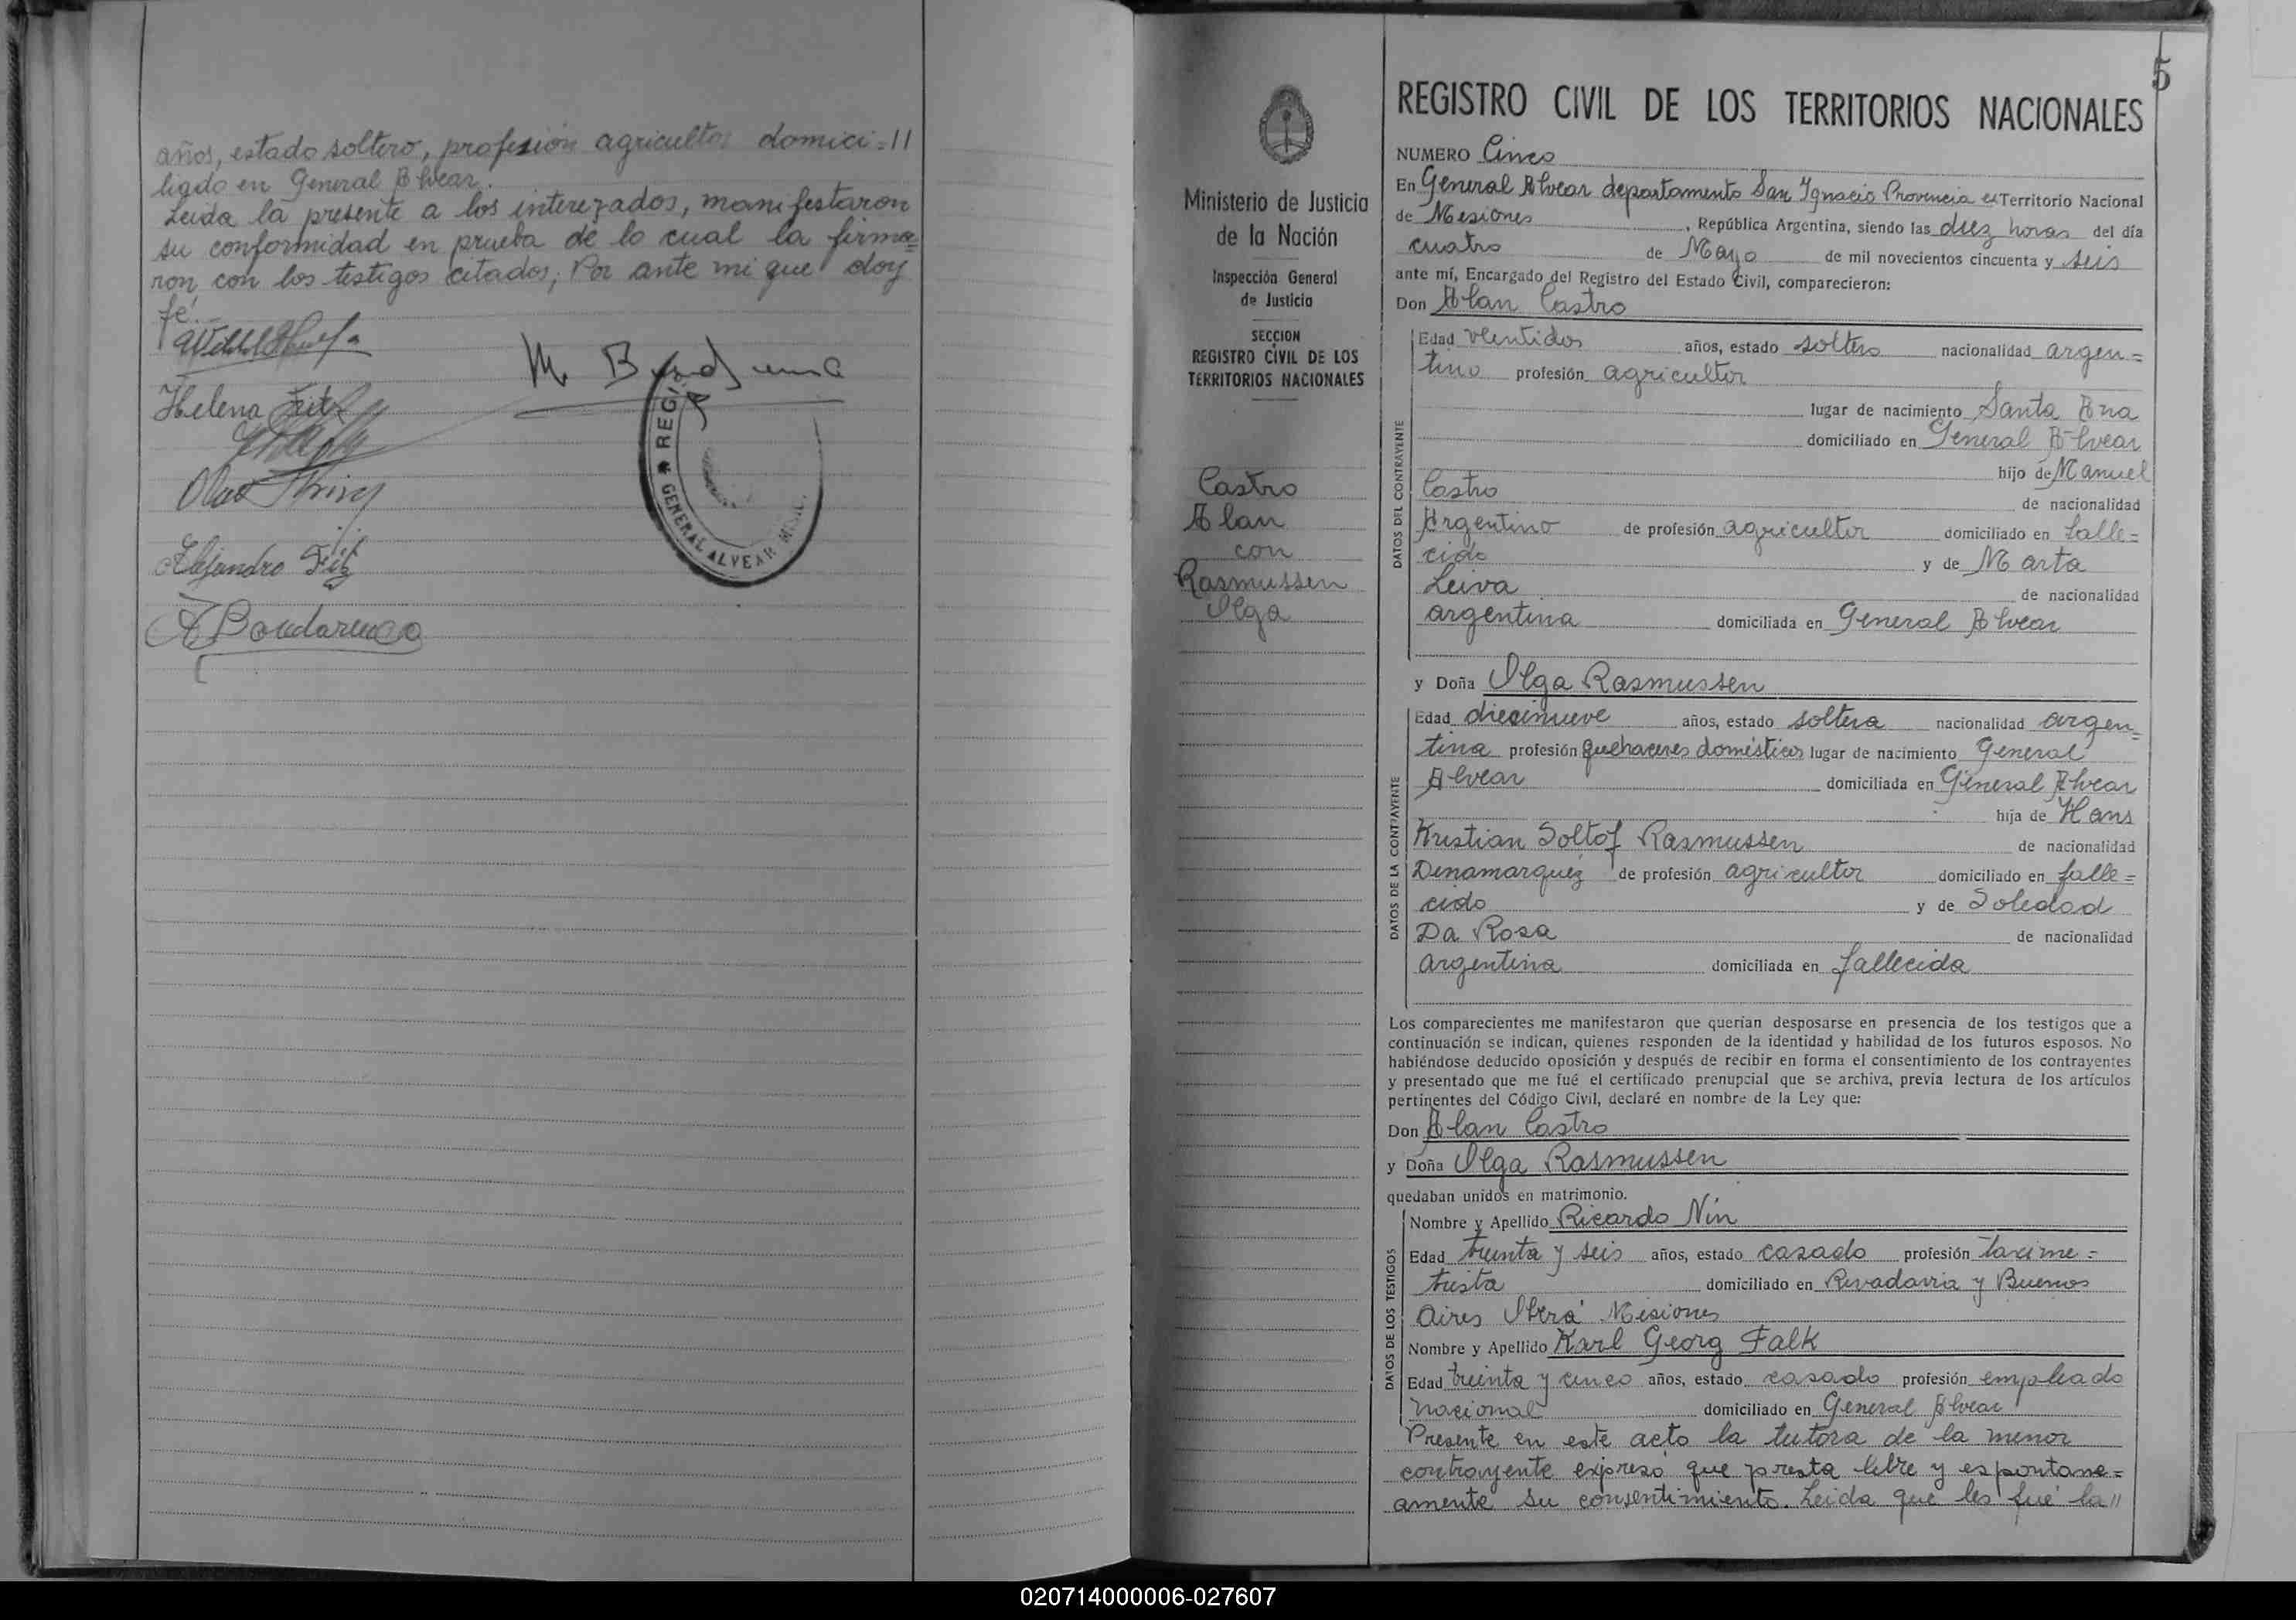 años, estado soltero, profesión agricultor domici=//
liado en General Alvear.
Leida la presente a los interezados, manifestaron
su conformidad en prueba de lo cual la firma=
ron, con los testigos citados; Por ante mi que doy
fé.
Helena Fritz
Alejandro Fritz
A Bondarenco
★ REG
GENERAL ALVEAR
5
REGISTRO CIVIL DE LOS TERRITORIOS NACIONALES
Ministerio de Justicia
de la Nación
Inspección General
de Justicia
SECCION
REGISTRO CÍVIL DE LOS
TERRITORIOS NACIONALES
Castro
Alan
con
Rasmussen
Olga
NUMERO Cinco
En General Alvear departamento San Ignacio Provincia ex Territorio Nacional
de Mesiones, República Argentina, siendo las diez horas del día
cuatro de Mayo de mil novecientos cincuenta y seis
ante mí, Encargado del Registro del Estado Civil, comparecieron:
Don Alan Castro
DATOS DEL CONTRAYENTE
Edad ventidos años, estado soltero nacionalidad argen=
tino profesión agricultor
lugar de nacimiento Santa Ana
domiciliado en General Alvear
hijo de Manuel
Castro de nacionalidad
Argentino de profesión agricultor domiciliado en falle=
cido y de Marta
Leiva de nacionalidad
argentina domiciliada en General Alvear
y Doña Olga Rasmussen
DATOS DE LA CONTRAYENTE
Edad diecinueve años, estado soltera nacionalidad argen=
tina profesión quehaceres domésticos lugar de nacimiento General
Alvear domiciliada en General Alvear
hija de Hans
Kristian Soltof Rasmussen de nacionalidad
Dinamarquéz de profesión agricultor domiciliado en falle=
cido y de Soledad
Da Rosa de nacionalidad
argentina domiciliada en fallecida
Los comparecientes me manifestaron que querían desposarse en presencia de los testigos que a
continuación se indican, quienes responden de la identidad y habilidad de los futuros esposos. No
habiéndose deducido oposición y después de recibir en forma el consentimiento de los contrayentes
y presentado que me fué el certificado prenupcial que se archiva, previa lectura de los artículos
pertinentes del Código Civil, declaré en nombre de la Ley que:
Don Alan Castro
y Doña Olga Rasmussen
quedaban unidos en matrimonio.
DATOS DE LOS TESTIGOS
Nombre y Apellido Ricardo Nin
Edad treinta y seis años, estado casado profesión taxime=
trista domiciliado en Rivadavia y Buenos
Aires Oberá Misiones
Nombre y Apellido Karl Georg Falk
Edad treinta y cinco años, estado casado profesión empleado
nacional domiciliado en General Alvear
Presente en este acto la tutora de la menor
contrayente expresó que presta libre y espontane=
amente su consentimiento. Leida que les fué la//
020714000006-027607